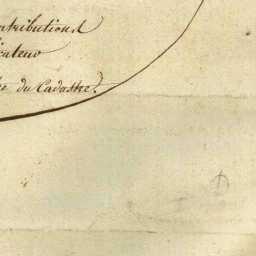 ntributions
icateur
du Cadastre.